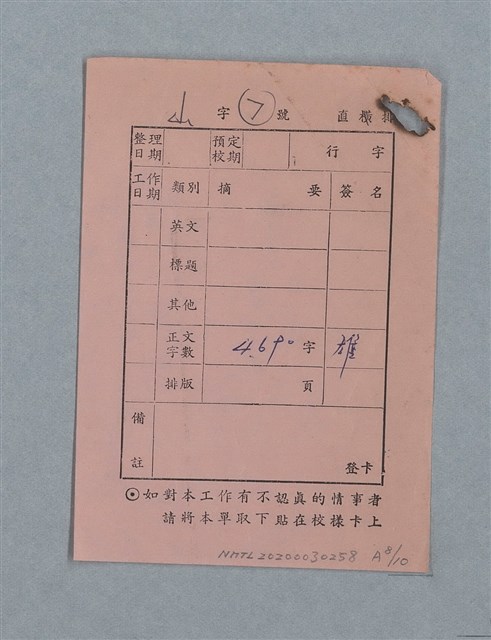 山 字 7 號 直橫排
整理日期 預定校期 行 字
工作日期 類別 摘 要 簽名
英文
標題
其他
正文字數 4.690 字 雄
排版 頁
備註 登卡
⊙如對本工作有不認眞的情事者
請將本單取下貼在校樣卡上
NMTL20200030258 A8/10